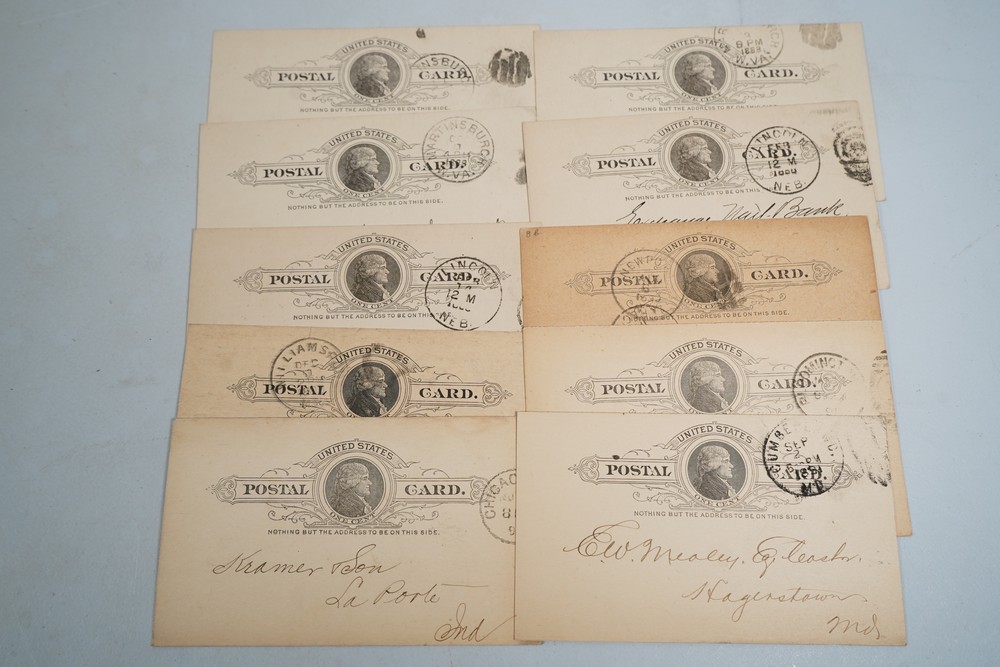 UNITED STATES
POSTAL CARD.
NOTHING BUT THE ADDRESS TO BE ON THIS SIDE.
UNITED STATES
POSTAL CARD.
NOTHING BUT THE ADDRESS TO BE ON THIS SIDE.
9 PM
W.VA.
UNITED STATES
POSTAL CARD.
ONE CENT
NOTHING BUT THE ADDRESS TO BE ON THIS SIDE.
MARTINSBURGH
W.VA.
UNITED STATES
POSTAL CARD.
ONE CENT
NOTHING BUT THE ADDRESS TO BE ON THIS SIDE.
LINCOLN
FEB
12 M
NEB.
Exchange Natl. Bank
UNITED STATES
POSTAL CARD.
ONE CENT
NOTHING BUT THE ADDRESS TO BE ON THIS SIDE.
LINCOLN
12 M
NEB.
UNITED STATES
POSTAL CARD.
ONE CENT
NOTHING BUT THE ADDRESS TO BE ON THIS SIDE.
UNITED STATES
POSTAL CARD.
DEC
UNITED STATES
POSTAL CARD.
UNITED STATES
POSTAL CARD.
ONE CENT
NOTHING BUT THE ADDRESS TO BE ON THIS SIDE.
CHICAGO
Kramer & Son
La Porte
Ind
UNITED STATES
POSTAL CARD.
ONE CENT
NOTHING BUT THE ADDRESS TO BE ON THIS SIDE.
SEP
MD.
E.W. Mealey
Hagerstown
Md.